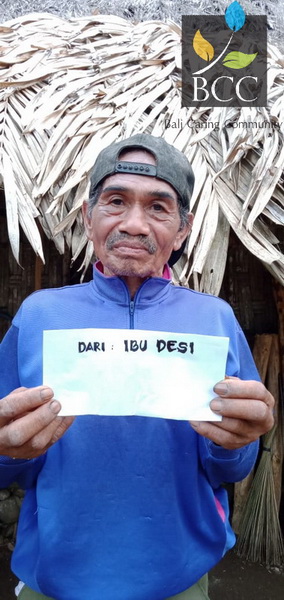 BCC
Bali Caring Community
DARI : IBU DESI